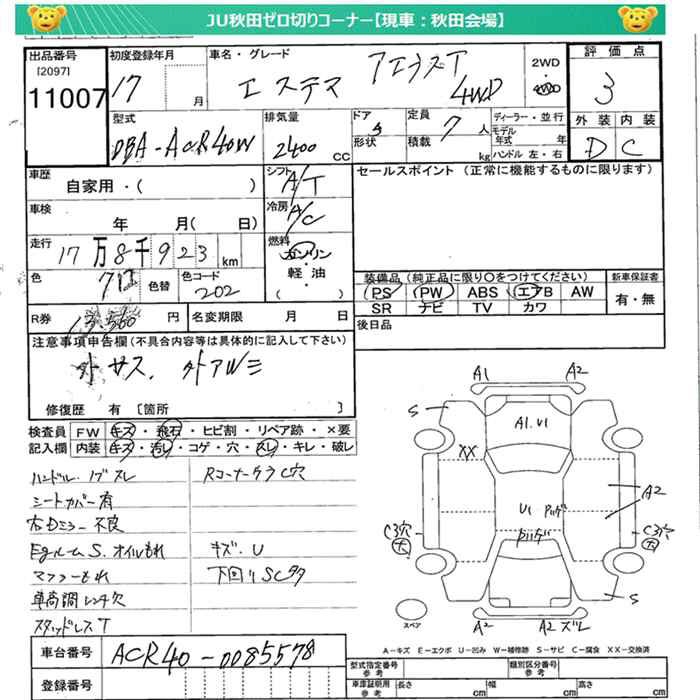 JU秋田ゼロ切りコーナー【現車：秋田会場】
出品番号
[2097]
11007
初度登録年月
17
月
車名・グレード
エステマ アエラスT
4WD
2WD
・
4WD
評価点
3
外装 内装
D C
型式
DBA-ACR40W
排気量
2400
CC
ドア
5
形状
定員
7 人
積載
kg
ディーラー・並行
モデル
年式 年
ハンドル 左・右
車歴
自家用・( )
シフト
A/T
セールスポイント (正常に機能するものに限ります)
車検
年 月( 日)
冷房
A/C
走行
17万8千923 km
燃料
ガソリン
軽・油
( )
色
色替
色コード
202
装備品(純正品に限り○をつけてください)
PS PW ABS エアB AW
SR ナビ TV カワ
新車保証書
有・無
R券
13,560 円
名変期限 月 日
後日品
注意事項申告欄(不具合内容等は具体的に記入して下さい)
外サス、外アルミ
修復歴 有 [箇所 ]
検査員 FW キズ・飛石・ヒビ割・リペア跡・×要
記入欄 内装 キズ・汚レ・コゲ・穴・スレ・キレ・破レ
ハンドル・ノブスレ
シートカバー有
右Dミラー不良
EgルームS、オイルもれ
マフラーもれ
車高調レンチ欠
スタッドレスT
RコーナークラC穴
キズ・U
下回りSCタク
A1 A2
S
A1.U1
XX
U1 PルーF
A2
C3穴
大
C3穴
大
S
スペア
A2 A2ズレ
A-キズ E-エクボ U-凹み W-補修跡 S-サビ C-腐食 XX-交換済
車台番号
ACR40-0085578
登録番号
型式指定番号
参考
類別区分番号
参考
車庫証明用
参考
長さ cm
幅 cm
高さ cm